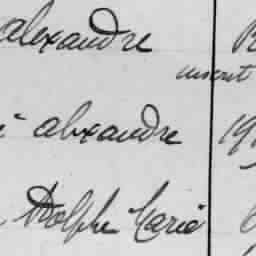 alexandre
inscrit
alexandre 19
Adolphe Marie